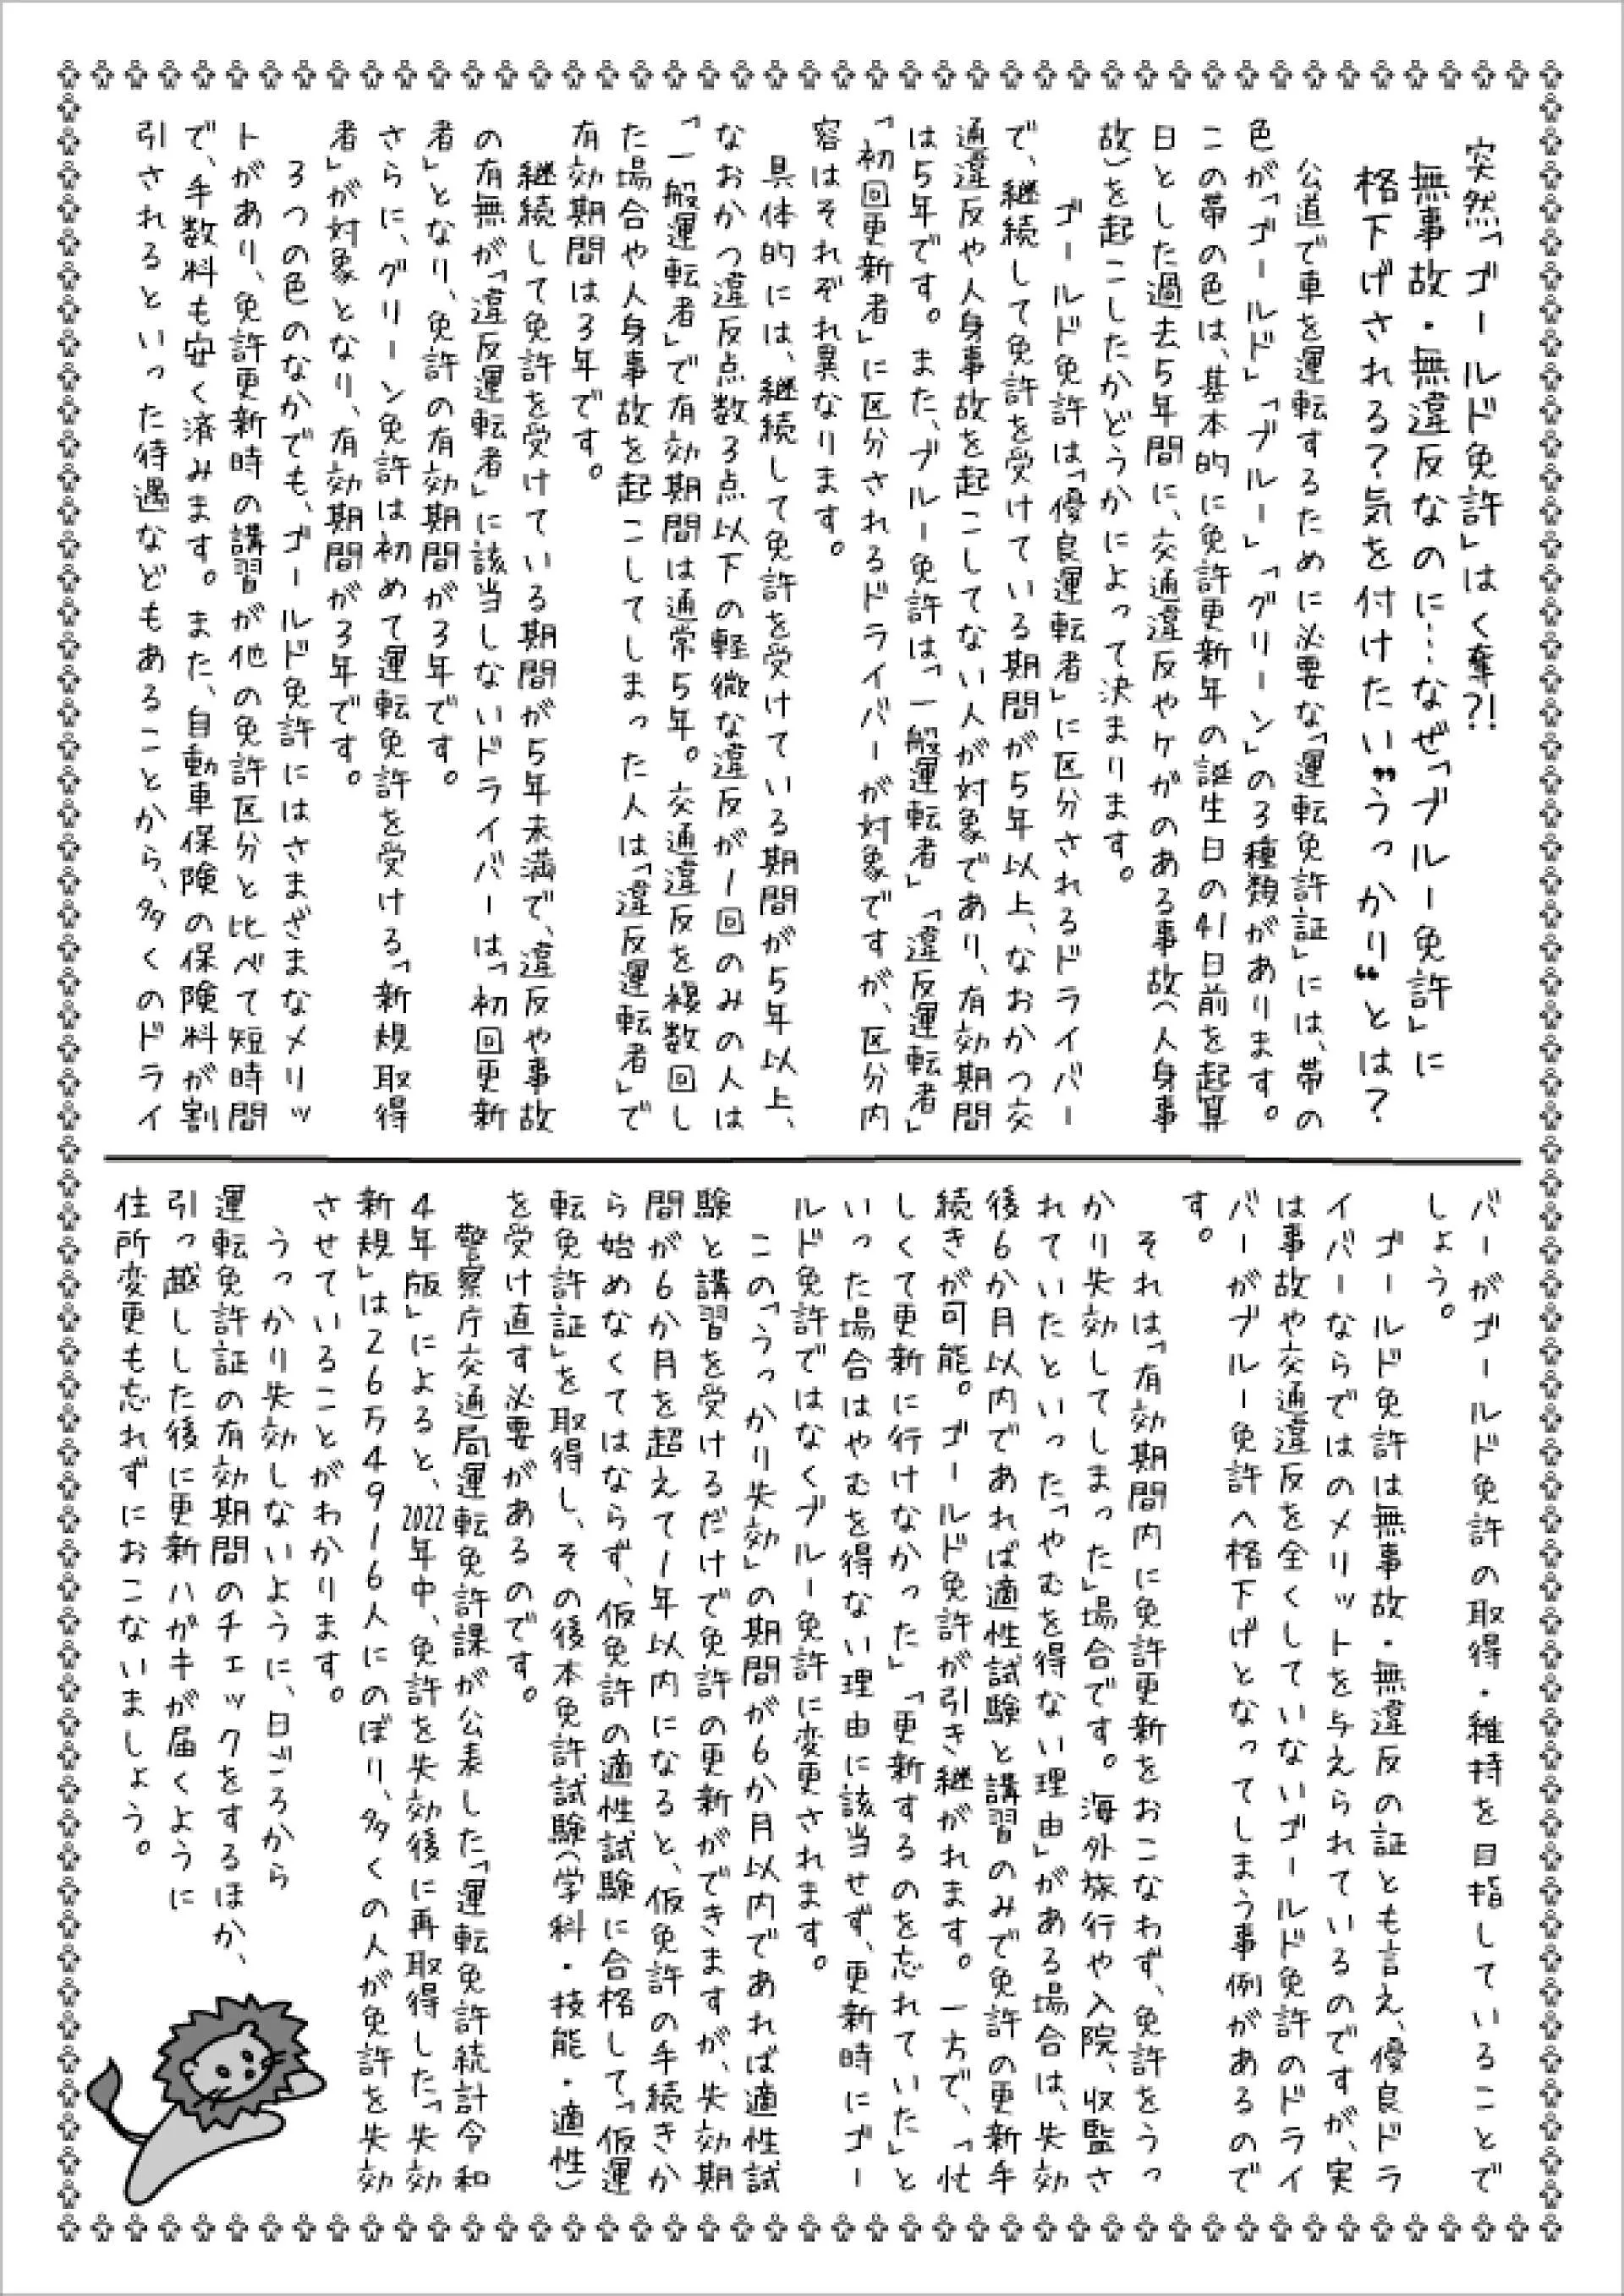 突然「ゴールド免許」はく奪?!
無事故・無違反なのに…なぜ「ブルー免許」に
格下げされる?気を付けたい"うっかり"とは?
公道で車を運転するために必要な「運転免許証」には、帯の
色が「ゴールド」「ブルー」「グリーン」の3種類があります。
この帯の色は、基本的に免許更新年の誕生日の41日前を起算
日とした過去5年間に、交通違反やケガのある事故(人身事
故)を起こしたかどうかによって決まります。
ゴールド免許は「優良運転者」に区分されるドライバー
で、継続して免許を受けている期間が5年以上、なおかつ交
通違反や人身事故を起こしてない人が対象であり、有効期間
は5年です。また、ブルー免許は「一般運転者」「違反運転者」
「初回更新者」に区分されるドライバーが対象ですが、区分内
容はそれぞれ異なります。
具体的には、継続して免許を受けている期間が5年以上、
なおかつ違反点数3点以下の軽微な違反が1回のみの人は
「一般運転者」で有効期間は通常5年。交通違反を複数回し
た場合や人身事故を起こしてしまった人は「違反運転者」で
有効期間は3年です。
継続して免許を受けている期間が5年未満で、違反や事故
の有無が「違反運転者」に該当しないドライバーは、「初回更新
者」となり、免許の有効期間が3年です。
さらに、グリーン免許は初めて運転免許を受ける「新規取得
者」が対象となり、有効期間が3年です。
3つの色のなかでも、ゴールド免許にはさまざまなメリッ
トがあり、免許更新時の講習が他の免許区分と比べて短時間
で、手数料も安く済みます。また、自動車保険の保険料が割
引されるといった待遇などもあることから、多くのドライ
バーがゴールド免許の取得・維持を目指していることで
しょう。
ゴールド免許は無事故・無違反の証とも言え、優良ドラ
イバーならではのメリットを与えられているのですが、実
は事故や交通違反を全くしていないゴールド免許のドライ
バーがブルー免許へ格下げとなってしまう事例があるので
す。
それは「有効期間内に免許更新をおこなわず、免許をうっ
かり失効してしまった」場合です。海外旅行や入院、収監さ
れていたといった「やむを得ない理由」がある場合は、失効
後6か月以内であれば適性試験と講習のみで免許の更新手
続きが可能。ゴールド免許が引き継がれます。一方で、「忙
しくて更新に行けなかった」「更新するのを忘れていた」と
いった場合はやむを得ない理由に該当せず、更新時にゴー
ルド免許ではなくブルー免許に変更されます。
この「うっかり失効」の期間が6か月以内であれば適性試
験と講習を受けるだけで免許の更新ができますが、失効期
間が6か月を超えて1年以内になると、仮免許の手続きか
ら始めなくてはならず、仮免許の適性試験に合格して、「仮運
転免許証」を取得し、その後本免許試験(学科・技能・適性)
を受け直す必要があるのです。
警察庁交通局運転免許課が公表した「運転免許統計令和
4年版」によると、2022年中、免許を失効後に再取得した「失効
新規」は26万4916人にのぼり、多くの人が免許を失効
させていることがわかります。
うっかり失効しないように、日ごろから
運転免許証の有効期間のチェックをするほか、
引っ越しした後に更新ハガキが届くように
住所変更も忘れずにおこないましょう。